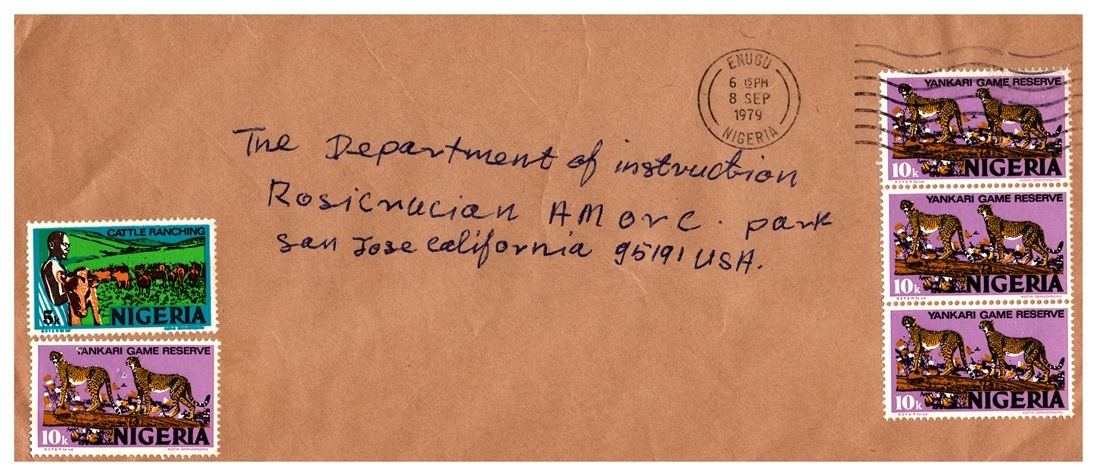 ENUGU
6 15PM
8 SEP
1979
NIGERIA
YANKARI GAME RESERVE
10k NIGERIA
YANKARI GAME RESERVE
10k NIGERIA
YANKARI GAME RESERVE
10k NIGERIA
The Department of instruction
Rosicrucian AMORC. park
San Jose California 95191 USA.
CATTLE RANCHING
5k NIGERIA
YANKARI GAME RESERVE
10k NIGERIA